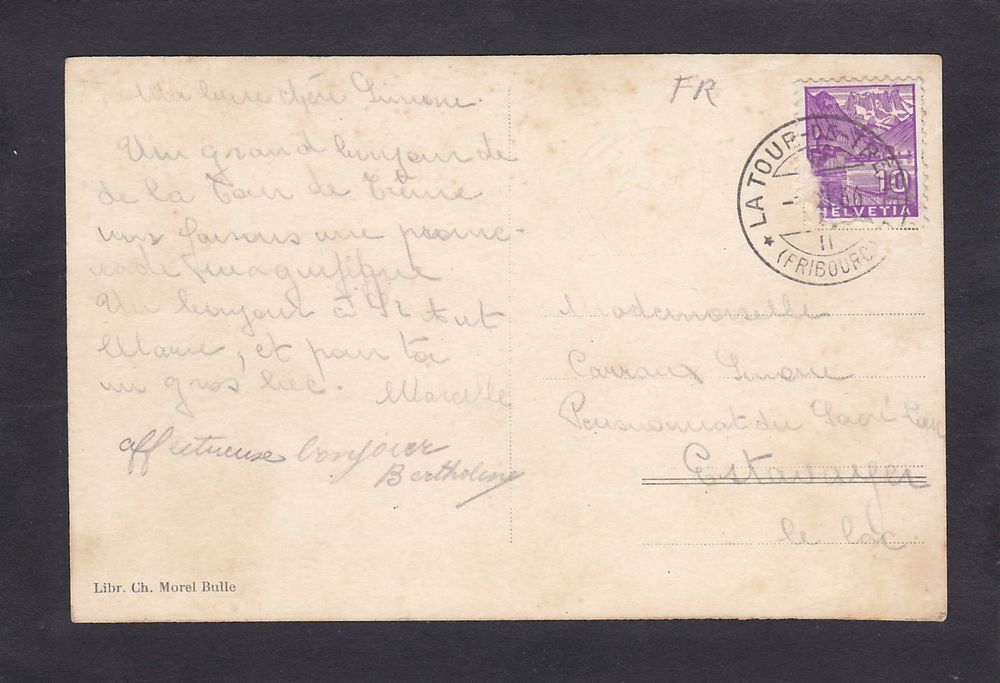 Ma bien chère Simone.
Un grand bonjour de
de la Tour de Trême
nous faisons une prome-
nade magnifique
Un bonjour à Sr
Marie, et pour toi
un gros bec. Marcelle
affectueuse bonjour
Bertheline
Libr. Ch. Morel Bulle
FR
10
HELVETIA
★ LA TOUR-DE-TRÊME
(FRIBOURG)
II
Mademoiselle
Carraux Simone
Pensionnat du Sacré Cœur
Estavayer
le lac.